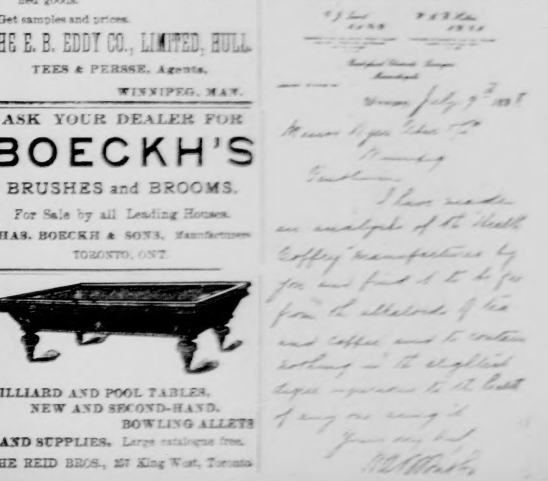 Get samples and prices.
THE E. B. EDDY CO., LIMITED, HULL.
TEES & PERSSE, Agents,
WINNIPEG, MAN.
ASK YOUR DEALER FOR
BOECKH'S
BRUSHES and BROOMS.
For Sale by all Leading Houses.
CHAS. BOECKH & SONS, Manufacturers
TORONTO, ONT.
BILLIARD AND POOL TABLES,
NEW AND SECOND-HAND.
BOWLING ALLEYS
AND SUPPLIES. Large catalogue free.
THE REID BROS., 257 King West, Toronto
July 9
Gentlemen
I have made
an analysis of the "Health
Coffee" manufactured by
you and find it to be free
from the alkaloids of tea
and coffee and to contain
nothing in the slightest
degree injurious to the health
of any one using it
Yours